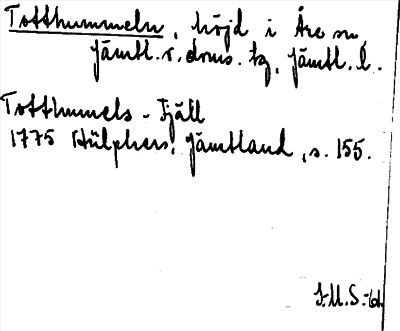 Totthummeln, höjd i Åre sn,
Jämtl. v. doms. tg, Jämtl. l.
Totthummels-Fjäll
1775 Hülphers, Jämtland, s. 155.
J.M.S.-64